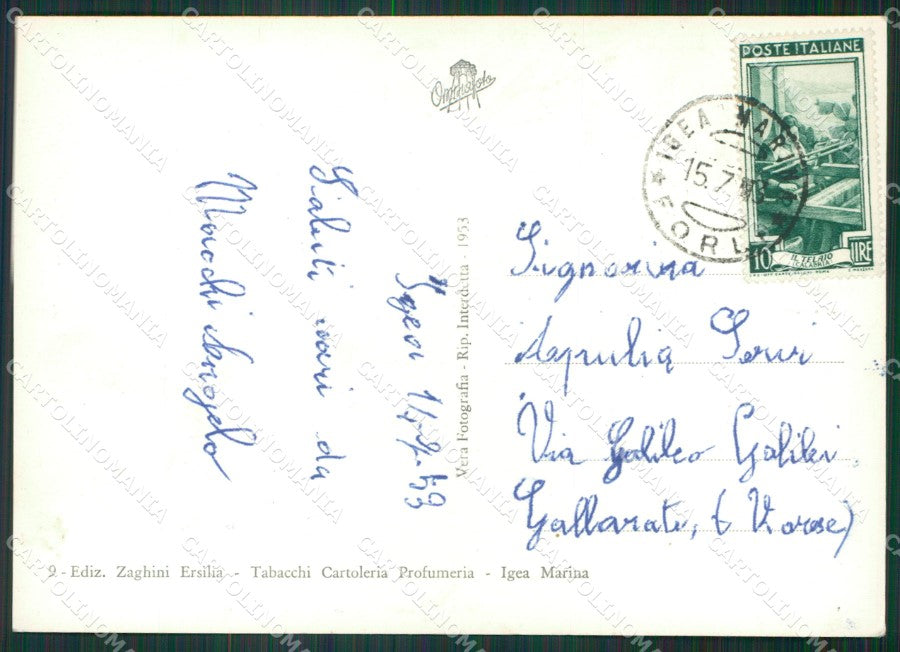 POSTE ITALIANE
10 IL TELAIO LIRE
IGEA MARINA
15.7.53
FORLI
Igea 14-7-53
Saluti cari da
Marchi Angelo
Vera Fotografia - Rip. Interdetta - 1953
Signorina
Via Galileo Galilei
Gallarate, (Varese)
9 - Ediz. Zaghini Ersilia - Tabacchi Cartoleria Profumeria - Igea Marina
CARTOLINOMANIA